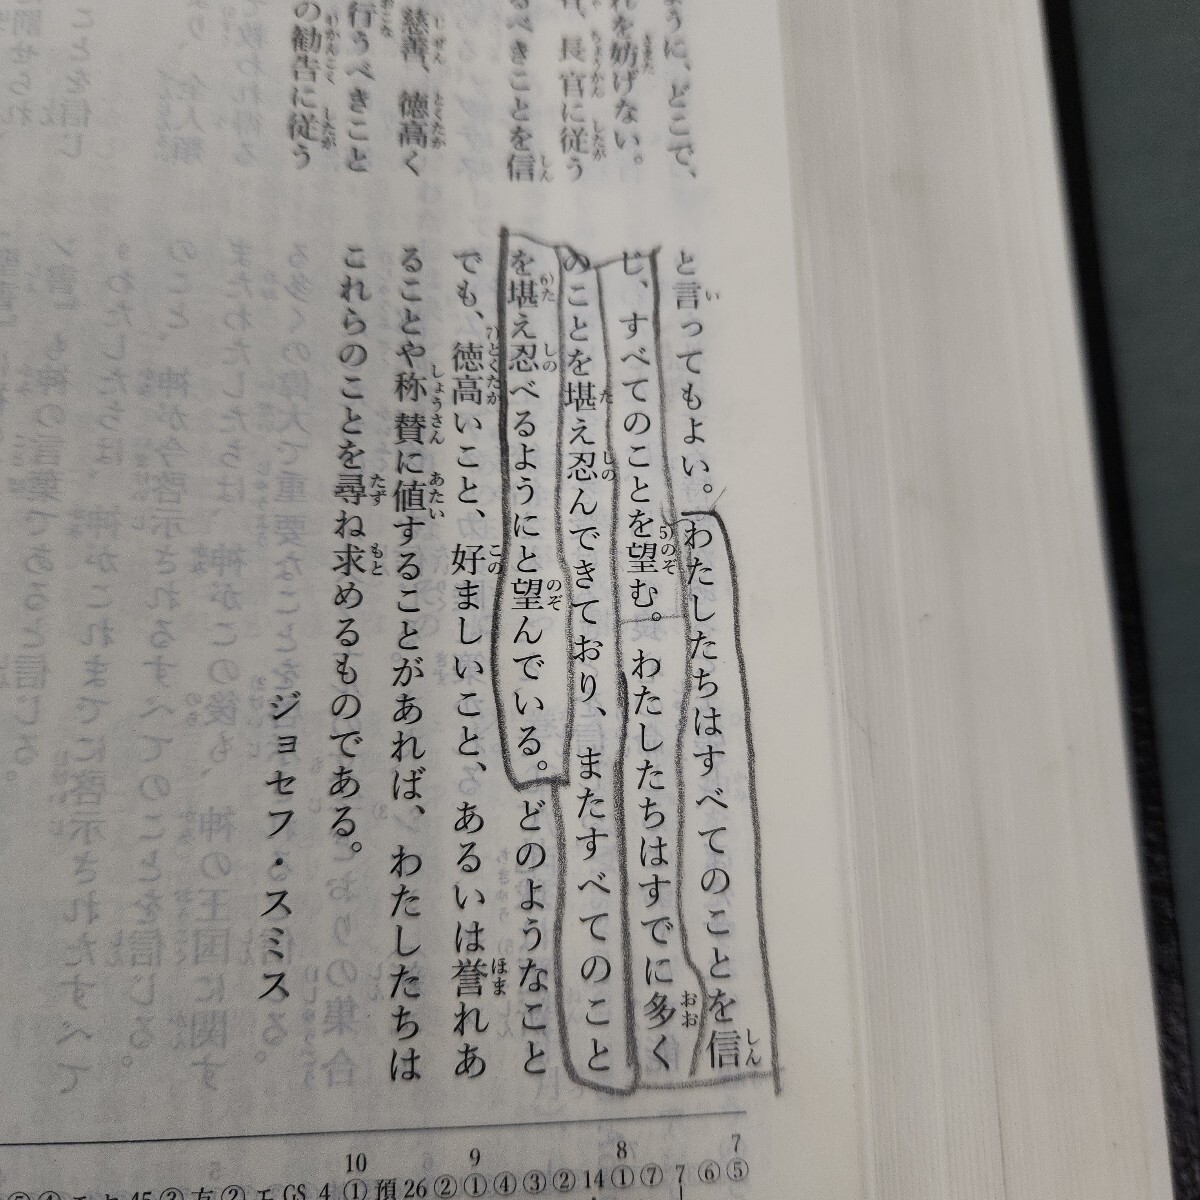 ように、どこで、
れを妨げない。
、長官に従う
るべきことを信
慈善、徳高く
行うべきこと
の勧告に従う
と言ってもよい。わたしたちはすべてのことを信
じ、すべてのことを望む。わたしたちはすでに多く
のことを堪え忍んできており、またすべてのこと
を堪え忍べるようにと望んでいる。どのようなこと
でも、徳高いこと、好ましいこと、あるいは誉れあ
ることや称賛に値することがあれば、わたしたちは
これらのことを尋ね求めるものである。
ジョセフ・スミス
10 9 8 7
④ こと 45 ② 方 ② エ GS 4 ① 預 26 ② ① ④ ③ ② 14 ① ⑦ 7 ⑥ ⑤